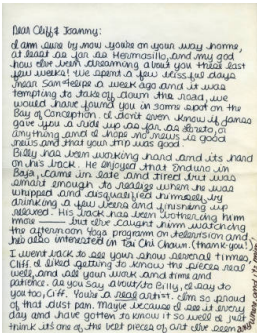 Dear Cliff & Joanny:
I am sure by now you're on your way home,
at least as far as Hermosillo, and my god
how I've been dreaming about you these last
few weeks! We spent a few blissful days
near San Felipe a week ago and it was
tempting to take off down the road, we
would have found you in some spot on the
Bay of Conception. I don't even know if James
gave you a ride up as far as Loreto, or
anything and I hope no news is good
news and that your trip was good.
Billy has been working hard and its hard
on his back. He enjoyed that Enduro in
Baja, came in late and tired but was
smart enough to realize when he was
whipped and disqualified himself by
drinking a few beers and finishing up
relaxed. His back has been bothering him
more — but I've caught him watching
the afternoon Yoga program on television and
he's also interested in Tai Chi Chuan. (thank you!)
I went back to see your show several times,
Cliff. I liked getting to know the pieces real
well, and see your work and time and
patience. As you say about/to Billy, I say to
you too, Cliff. You're a real artist. I'm so proud
of that dust pan. Maybe because I see it every
day and have gotten to know it so well I just
think its one of the best pieces of art I've seen